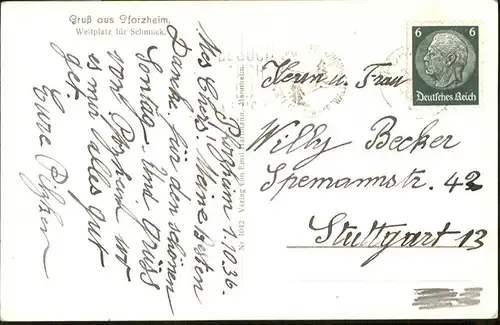 Gruß aus Pforzheim,
Weltplatz für Schmuck.
Pforzheim 1.10.36.
Meine Besten
Dank für den schönen
Sontag. Und Grüss
von Pforzheim wo
es mir alles gut
gef.
Eure
Nr. 1092 Verlag von Emil Hartmann, Mannheim.
6 6
Deutsches Reich
Herrn u. Frau
Willy Becker
Spemannstr. 42
Stuttgart 13